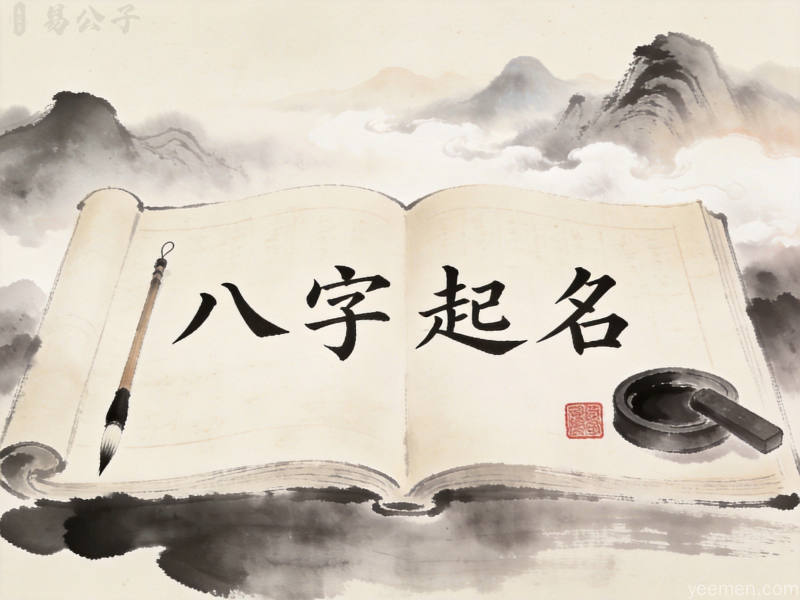 易公子
八字起名
yeemen.com